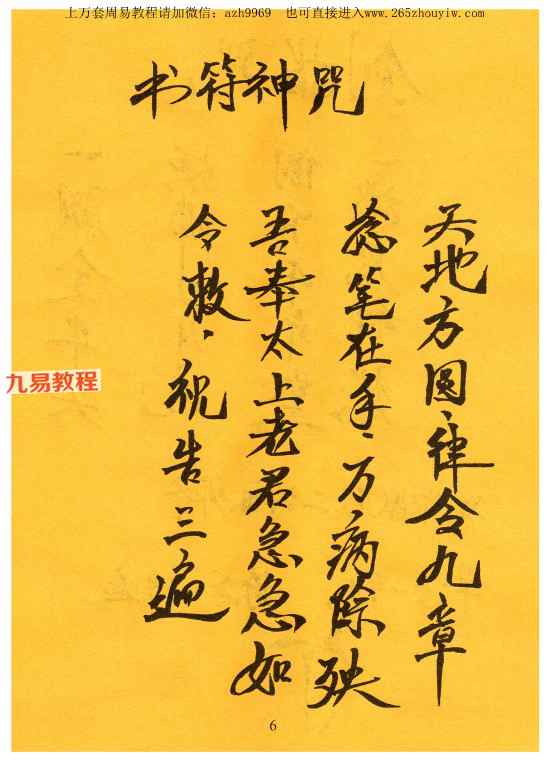 上万套周易教程请加微信：azh9969　也可直接进入www.265zhouyiw.com
书符神咒
天地方圆、律令九章
捻笔在手、万病除殃
吾奉太上老君急急如
令敕、祝告三遍
九易教程
6